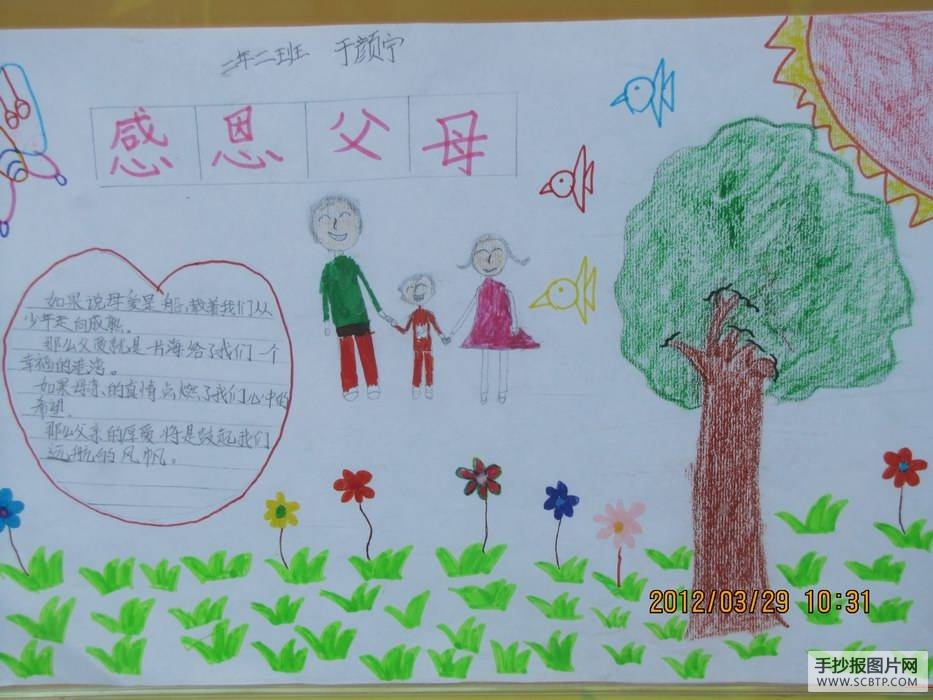 二年二班 于颜宁
感恩父母
如果说母爱是船,载着我们从
少年走向成熟。
那么父爱就是一片海给了我们一个
幸福的港湾。
如果母亲的真情点燃了我们心中的
希望.
那么父亲的厚爱将是鼓起我们
远航的风帆。
2012/03/29 10:31
手抄报图片网
WWW.SCBTP.COM